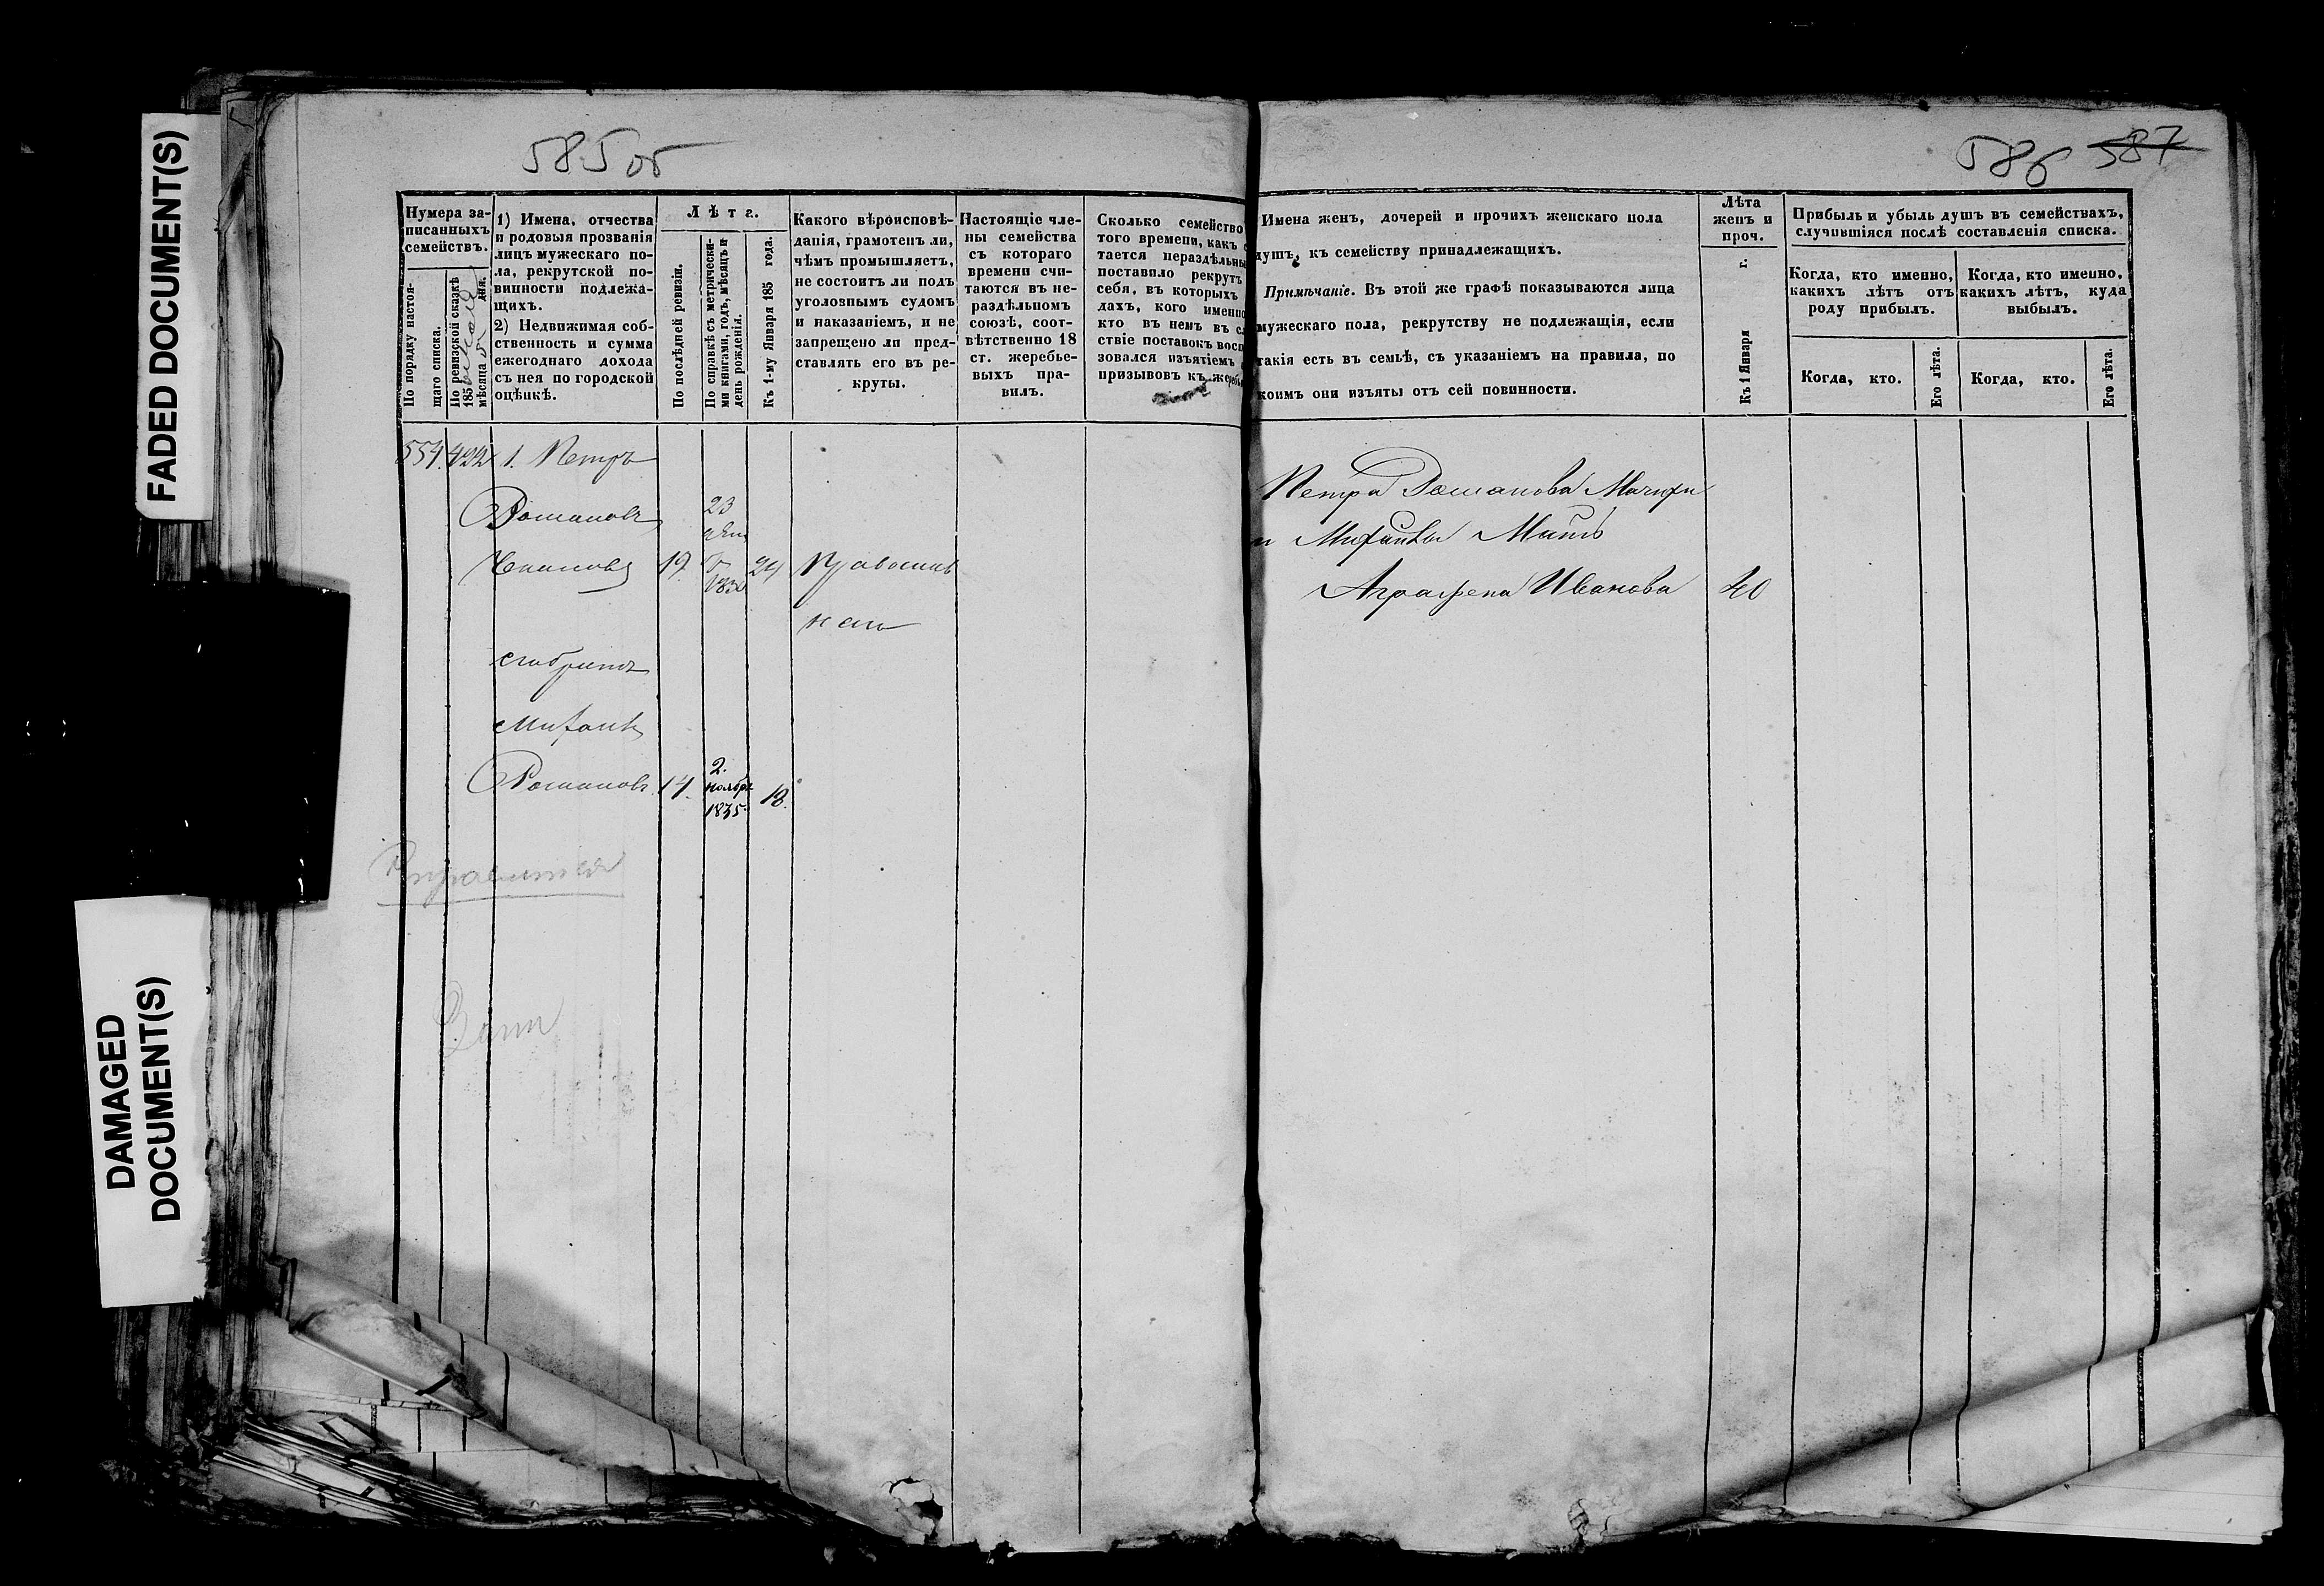 FADED DOCUMENT(S)
DAMAGED
DOCUMENT(S)
585 об
Нумера за-
писанныхъ
семействъ.
По порядку настоя-
щаго списка.
По ревизской сказкѣ
185
мѣсяца дня.
1) Имена, отчества
и родовыя прозванія
лицъ мужескаго по-
ла, рекрутской по-
винности подлежа-
щихъ.
2) Недвижимая соб-
ственность и сумма
ежегоднаго дохода
съ нея по городской
оцѣнкѣ.
Лѣта.
По послѣдней ревизіи.
По справкѣ съ метрически-
ми книгами, годъ, мѣсяцъ и
день рожденія.
Къ 1-му Января 185 года.
Какого вѣроисповѣ-
данія, грамотенъ ли,
чѣмъ промышляетъ,
не состоитъ ли подъ
уголовнымъ судомъ
и наказаніемъ, и не
запрещено ли пред-
ставлять его въ ре-
круты.
Настоящіе чле-
ны семейства
съ котораго
времени счи-
таются въ не-
раздѣльномъ
союзѣ, соот-
вѣтственно 18
ст. жеребье-
выхъ пра-
вилъ.
Сколько семейство
того времени, какъ с
тается нераздѣльны
поставило рекрутъ
себя, въ которыхъ
дахъ, кого именно
кто въ немъ въ сл
ствіе поставокъ восп
зовался изъятіемъ
призывовъ къ жереб
554. 422 1. Петръ
Романовъ 23
19. 24 Православ
наго
Романовъ. 14. 2.
ноябр
1835. 18.
586 587
Имена женъ, дочерей и прочихъ женскаго пола
душъ, къ семейству принадлежащихъ.
Примѣчаніе. Въ этой же графѣ показываются лица
мужескаго пола, рекрутству не подлежащія, если
такія есть въ семьѣ, съ указаніемъ на правила, по
коимъ они изъяты отъ сей повинности.
Лѣта
женъ и
проч.
Къ 1 Января г.
Прибыль и убыль душъ въ семействахъ,
случившіяся послѣ составленія списка.
Когда, кто именно,
какихъ лѣтъ отъ
роду прибылъ.
Когда, кто именно,
какихъ лѣтъ, куда
выбылъ.
Когда, кто.
Его лѣта.
Когда, кто.
Его лѣта.
Петра Романова
и Мать
Аграфена Иванова 40